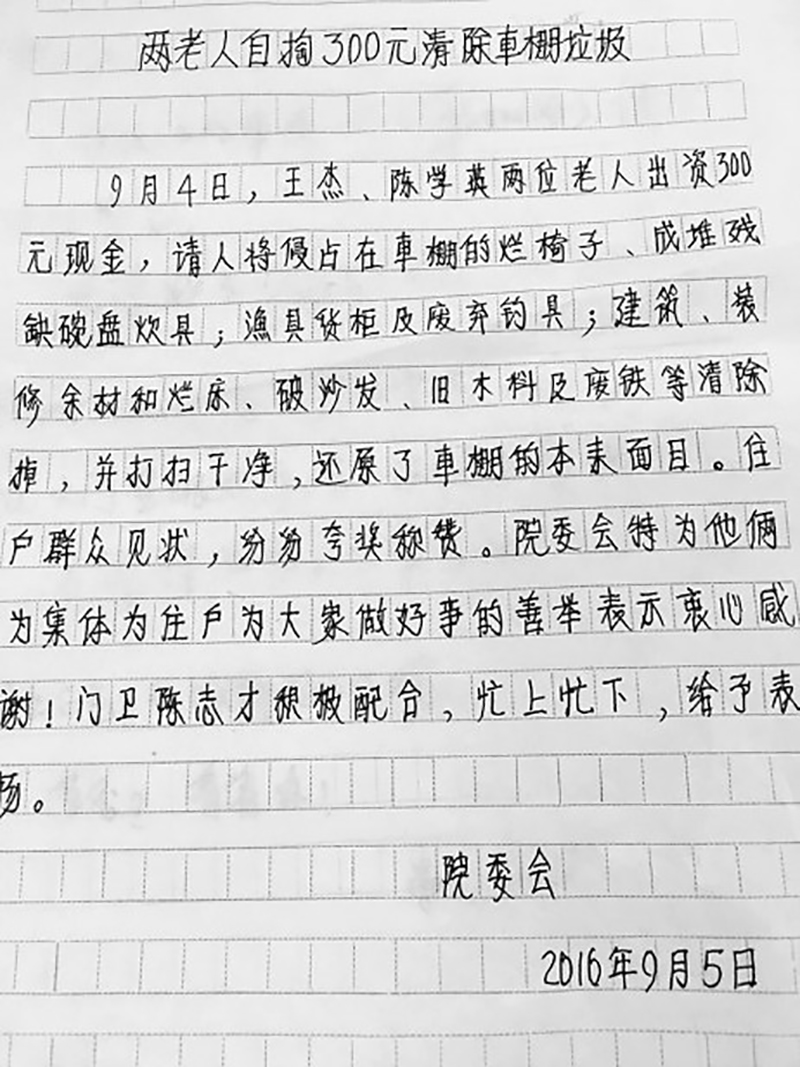 两老人自掏300元清除車棚垃圾
9月4日，王杰、陈学英两位老人出资300
元现金，请人将侵占在車棚的烂椅子、成堆残
缺碗盘炊具；漁具货柜及废弃钓具；建筑、装
修余材和烂床、破沙发、旧木料及废铁等清除
掉，并打扫干净，还原了車棚的本来面目。住
户群众见状，纷纷夸奖称赞。院委会特为他俩
为集体为住户为大家做好事的善举表示衷心感
谢！门卫陈志才积极配合，忙上忙下，给予表
扬。
院委会
2016年9月5日